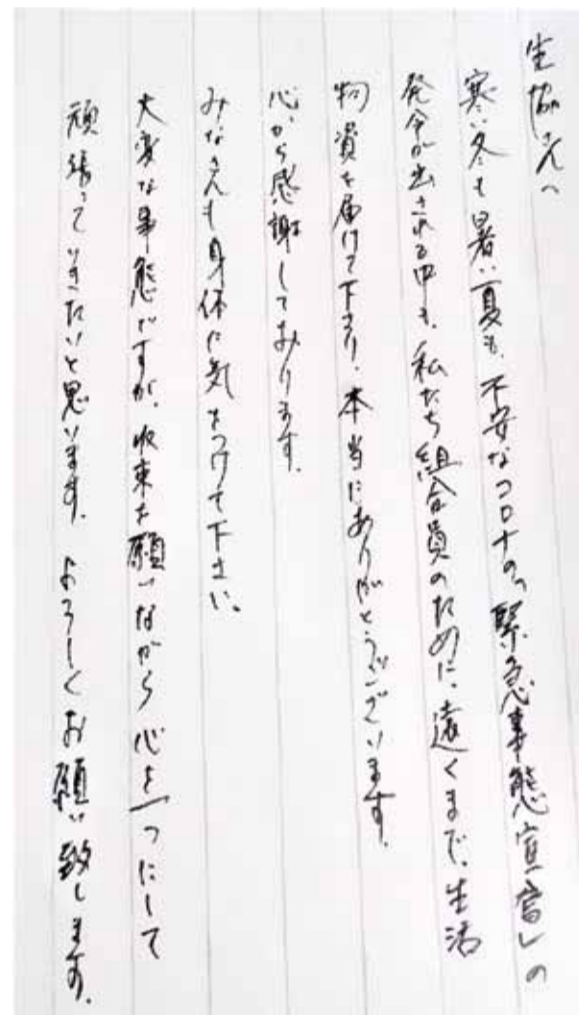 生協さんへ
寒い冬も暑い夏も、不安なコロナの「緊急事態宣言」の
発令が出される中も、私たち組合員のために、遠くまで、生活
物資を届けて下さり、本当にありがとうございます。
心から感謝しております。
みなさんも身体に気をつけて下さい。
大変な事態ですが、収束を願いながら心を一つにして
頑張っていきたいと思います。よろしくお願い致します。